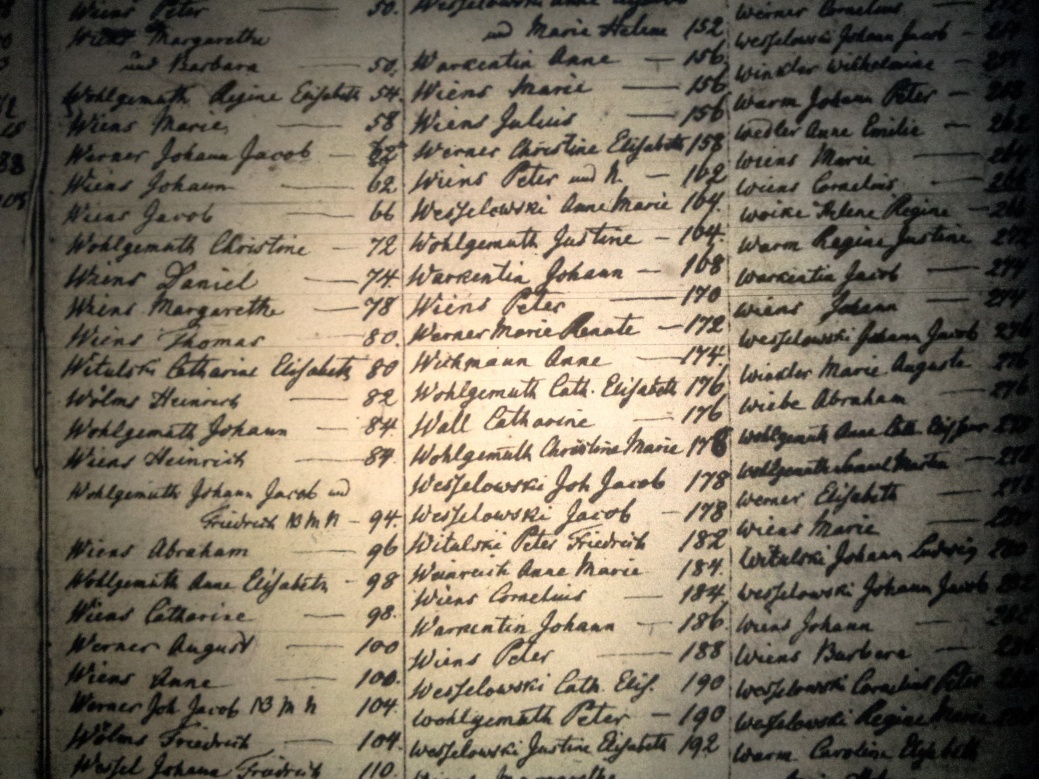 Wiens Peter — 50.
Wiens Margarethe
und Barbara — 50.
Wohlgemuth Regine Elisabeth 54.
Wiens Marie — 58
Werner Johann Jacob — 62
Wiens Johann — 62.
Wiens Jacob — 66
Wohlgemuth Christine — 72
Wiens Daniel — 74.
Wiens Margarethe — 78
Wiens Thomas — 80.
Witulski Catharine Elisabeth 80
Wölms Heinrich — 82
Wohlgemuth Johann — 84.
Wiens Heinrich — 84.
Wohlgemuth Johann Jacob und
Friedrich — 94.
Wiens Abraham — 96
Wohlgemuth Anne Elisabeth — 98
Wiens Catharine — 98.
Werner August — 100
Wiens Anne — 100.
Werner Joh Jacob — 104.
Wölms Friedrich — 104.
Wessel Johann Friedrich 110.
und Marie Helene 152
Warkentin Anne — 156
Wiens Marie — 156
Wiens Julius — 156
Werner Christine Elisabeth 158
Wiens Peter und N. — 162
Wesselowski Anne Marie 164.
Wohlgemuth Justine — 164.
Warkentin Johann — 168
Wiens Peter — 170
Werner Marie Renate — 172
Wichmann Anne — 174.
Wohlgemuth Cath. Elisabeth 176
Wall Catharine — 176
Wohlgemuth Christine Marie 178
Wesselowski Joh Jacob 178
Wesselowski Jacob — 178
Witulski Peter Friedrich 182
Weinreich Anne Marie 184.
Wiens Cornelius — 184
Warkentin Johann — 186
Wiens Peter — 188
Wesselowski Cath. Elis. 190
Wohlgemuth Peter — 190
Wesselowski Justine Elisabeth 192
Werner Cornelius
Wesselowski Johann Jacob
Winkler Wilhelmine
Warm Johann Peter
Wedler Anne Emilie
Wiens Marie
Wiens Cornelius
Woike Helene Regine
Warm Regine Justine
Warkentin Jacob — 274
Wiens Johann — 274
Wesselowski Johann Jacob
Winkler Marie Auguste
Wiebe Abraham
Wohlgemuth Anne Cath.
Wohlgemuth Samuel Martin
Werner Elisabeth
Wiens Marie
Witulski Johann Ludwig
Wesselowski Johann Jacob
Wiens Johann
Wiens Barbara
Wesselowski Cornelius Peter
Wesselowski Regine Marie
Warm Caroline Elisabeth